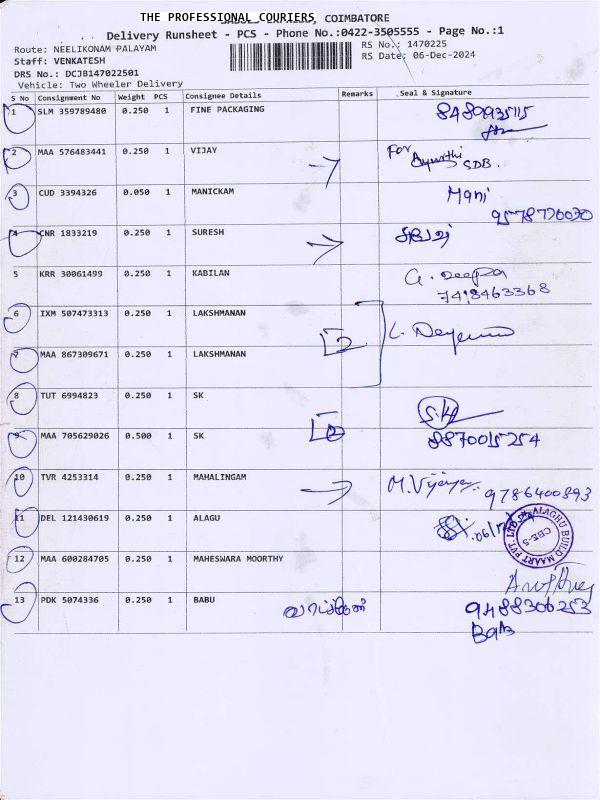 THE PROFESSIONAL COURIERS, COIMBATORE
Delivery Runsheet - PCS - Phone No.:0422-3505555 - Page No.:1
Route: NEELIKONAM PALAYAM
RS No.: 1470225
Staff: VENKATESH
RS Date: 06-Dec-2024
DRS No.: DCJB147022501
Vehicle: Two Wheeler Delivery
S No Consignment No Weight PCS Consignee Details Remarks Seal & Signature
1 SLM 359789480 0.250 1 FINE PACKAGING
2 MAA 576483441 0.250 1 VIJAY For SDB.
3 CUD 3394326 0.050 1 MANICKAM Mani
9578770070
4 CNR 1833219 0.250 1 SURESH
5 KRR 30061499 0.250 1 KABILAN G. Deepa
7418463368
6 IXM 507473313 0.250 1 LAKSHMANAN
7 MAA 867309671 0.250 1 LAKSHMANAN
8 TUT 6994823 0.250 1 SK S.K
9 MAA 705629026 0.500 1 SK 8870015254
10 TVR 4253314 0.250 1 MAHALINGAM M. Vijaya 9786400893
11 DEL 121430619 0.250 1 ALAGU
ALAGHU BUILD MAART PVT. LTD.
CBE-5
12 MAA 600284705 0.250 1 MAHESWARA MOORTHY
13 PDK 5074336 0.250 1 BABU 9488306253